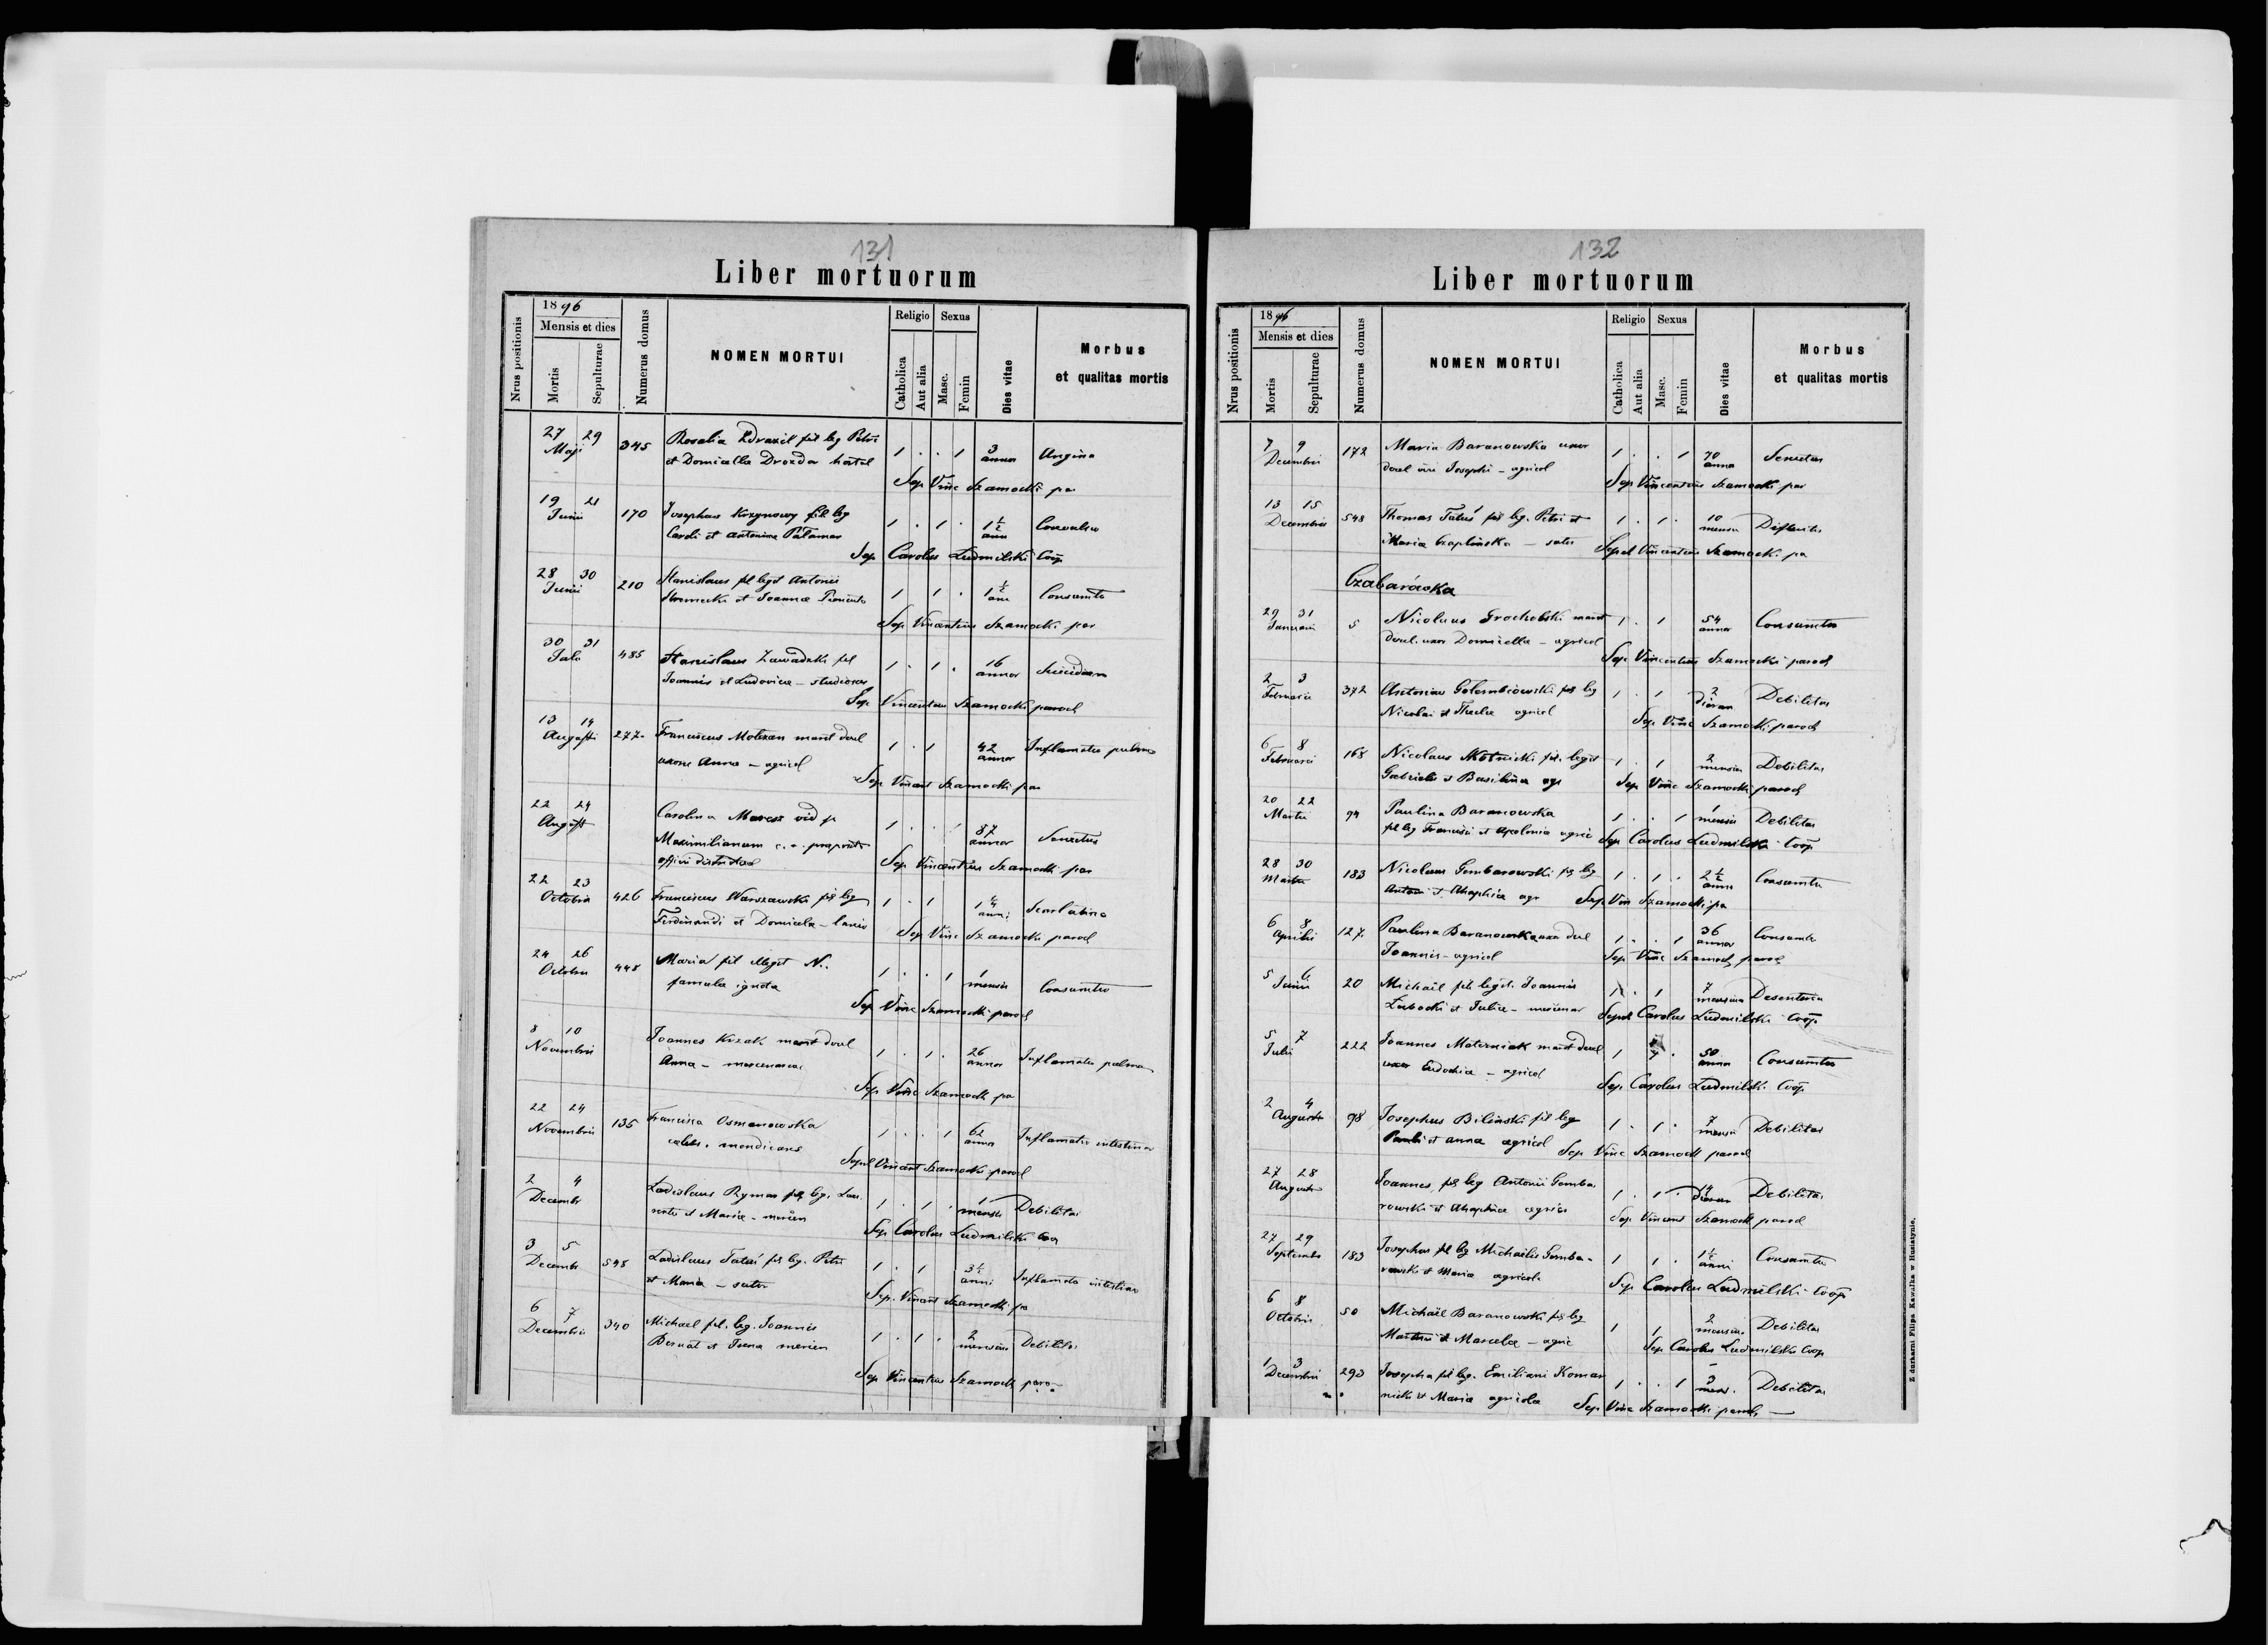 131
Liber mortuorum
Nrus positionis
1896
Mensis et dies
Mortis
Sepulturae
Numerus domus
NOMEN MORTUI
Religio
Catholica
Aut alia
Sexus
Masc.
Femin
Dies vitae
Morbus
et qualitas mortis
27 29 345 Rosalia Zdrazil fil leg Petri 1 . . 1 3 Angina
Maji et Domicella Drozda annor
Sep Vinc Szamocki pa
19 21 170 Josephus Krzynowy fil leg 1 . 1 . 1½
Junii Caroli et Antonina Palamar
Sep Carolus Ludmilski Coop
28 30 210 Stanislaus fil legit Antonii 1 1 . 1½
Junii et Joannae
Sep Vincentius Szamocki par
30 31 485 Stanislaus Zawadzki fil 1 . 1 . 16 Suicidium
Joannis et Ludovica – studiosus annor
Sep Vincentius Szamocki paroch
13 14 277 Franciscus mart doul 1 . 1 42 Inflamatio pulmo
Augusti uxore Anna – agricol annor
Sep Vincent Szamocki par
22 24 Carolina vid p 1 . . 87 Senectus
August Maximilianum annor
Sep Vincentius Szamocki par
22 23 426 Franciscus Warszawski fil leg 1 . 1 Scarlatina
Octobris Ferdinandi et Domicela – anni
Sep Vinc Szamocki paroch
24 26 448 Maria fil illegit N. 1 . . 1 1
Octobris famula ignota mensis
Sep Vinc Szamocki paroch
8 10 Joannes Krzak mart doul 1 . 1 . 26 Inflamatio pulmo
Novembris Anna – annor
Sep Vinc Szamocki pa
22 24 135 Francisca Osmanowska 1 . . 1 62 Inflamatio intestinor
Novembris celebs. mendicans anno
Sepel Vincent Szamocki paroch
2 4 Ladislaus Ryman fil leg. 1 . 1 . 1 Debilitas
Decembr et Maria – mensis
Sep Carolus Ludmilski
3 5 548 Ladislaus Tatuś fil leg. Petri 1 . 1 3½
Decembr et Maria – sutor anni
Sep. Vincent Szamocki pa
6 7 340 Michael fil. leg. Joannis 1 . 1 . 2 Debilitas
Decembris Bernat et mensium
Sep Vincentius Szamocki paro
132
Liber mortuorum
Nrus positionis
1896
Mensis et dies
Mortis
Sepulturae
Numerus domus
NOMEN MORTUI
Religio
Catholica
Aut alia
Sexus
Masc.
Femin
Dies vitae
Morbus
et qualitas mortis
7 9 172 Maria Baranowska uxor 1 . . 1 70 Senectus
Decembris doul viri Josephi – agricol anno
Sep Vincentius Szamocki par
13 15 548 Thomas Tatuś fil leg. Petri et 1 . 1 . 10
Decembris Maria Czaplinska – sutor
Sepel Vincentius Szamocki pa
Czabarówka
29 31 5 Nicolaus Grocholski marit 1 . 1 54
Januarii doul. uxor Domicella – agricol annor
Sep Vincentius Szamocki paroch
2 3 372 Antonius fil leg 1 . 1 2 Debilitas
Februarii Nicolai et Thecla agricol dieram
Sep Vinc Szamocki paroch
6 8 168 Nicolaus fil. legit 1 . 1 2 Debilitas
Februarii Gabrielis et Basilina agr mensium
Sep Vinc Szamocki paroch
20 22 94 Paulina Baranowska 1 . . 1 1 Debilitas
Martii fil leg Francisci et Apolonia agric mensis
Sep Carolus Ludmilski Coop
28 30 183 Nicolaus Gembarowski fil leg 1 . 1 . 2½
Martii Antoni et Ahaphia agr anni
Sep Vin Szamocki pa
6 8 127 Paulina Baranowska uxor doul 1 . . 1 36
Aprilis Joannis – agricol annor
Sep Vinc Szamock paroch
5 6 20 Michaël fil legit. Joannis 1 . 1 7
Junii et Julia – mensium
Sepel Carolus Ludmilski Coop
5 7 222 Joannes Materniak marit doul 1 . 50
Julii uxor Eudochia – agricol anno
Sep Carolus Ludmilski Coop.
2 4 98 Josephus Bilinski fil leg 1 . 1 . 7 Debilitas
Augusti Pauli et Anna agricol
Sep Vinc Szamocki paroch
27 28 Joannes fil leg Antonii Gemba 1 . 1 . 14 Debilitas
Augusti rowski et Ahaphia agric dieram
Sep Vincent Szamock paroch
27 29 183 Josephus fil leg Michaelis Gemba- 1 1 . 1½
Septembr rowski et Maria agricola anni
Sep Carolus Ludmilski Coop
6 8 50 Michaël Baranowski fil leg 1 1 2 Debilitas
Octobris Martini et Marcela – agric mensium
Sep Carolus Ludmilski Coop
1 3 293 Josepha fil leg. Emiliani Komar 1 . . 1 3 Debilitas
Decembris nicki et Maria agricola mens.
Sep Vinc Szamocki paroch
Z durkarni Filipa Kawalka w Husiatynie.